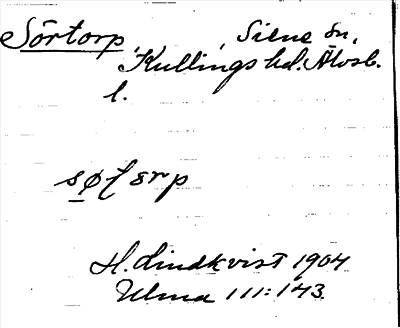 Sörtorp, Siene sn,
Kullings hd. Älvsb.
l.
H. Lindkvist 1904
Ulma 111:143.